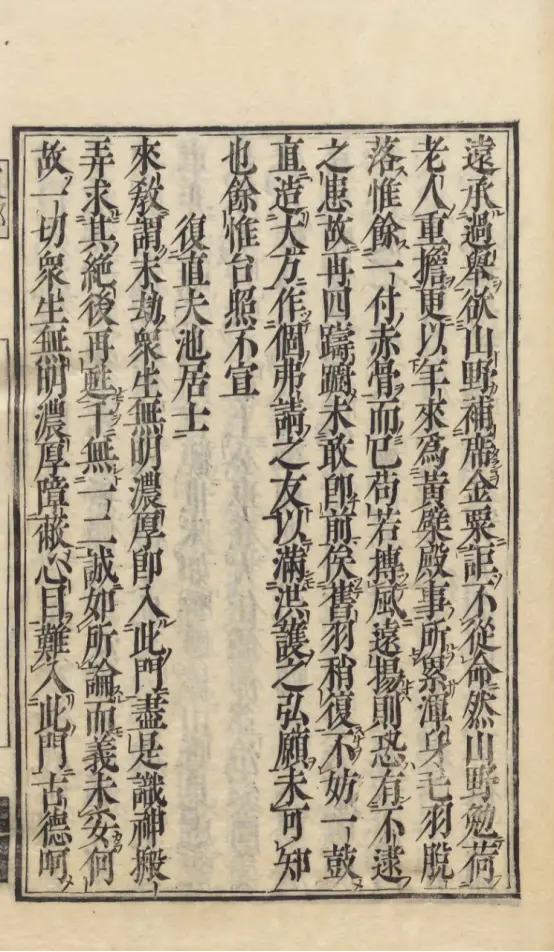 遠承過舉欲山野補席金粟詎不從命然山野勉荷
老人重擔更以年來為黃檗殿事所累渾身毛羽脫
落惟餘一付赤骨而已茍若摶風遠揚則恐有不逮
之患故再四躊躕未敢即前俟舊羽稍復不妨一鼓
直造大方作個弗請之友以滿洪護之弘願未可知
也餘惟台照不宣
復直夫池居士
來教謂末劫衆生無明濃厚即入此門盡是識神搬
弄求其絕後再甦千無一二誠如所論而義未安何
故一切衆生無明濃厚障蔽心目難入此門古德呵